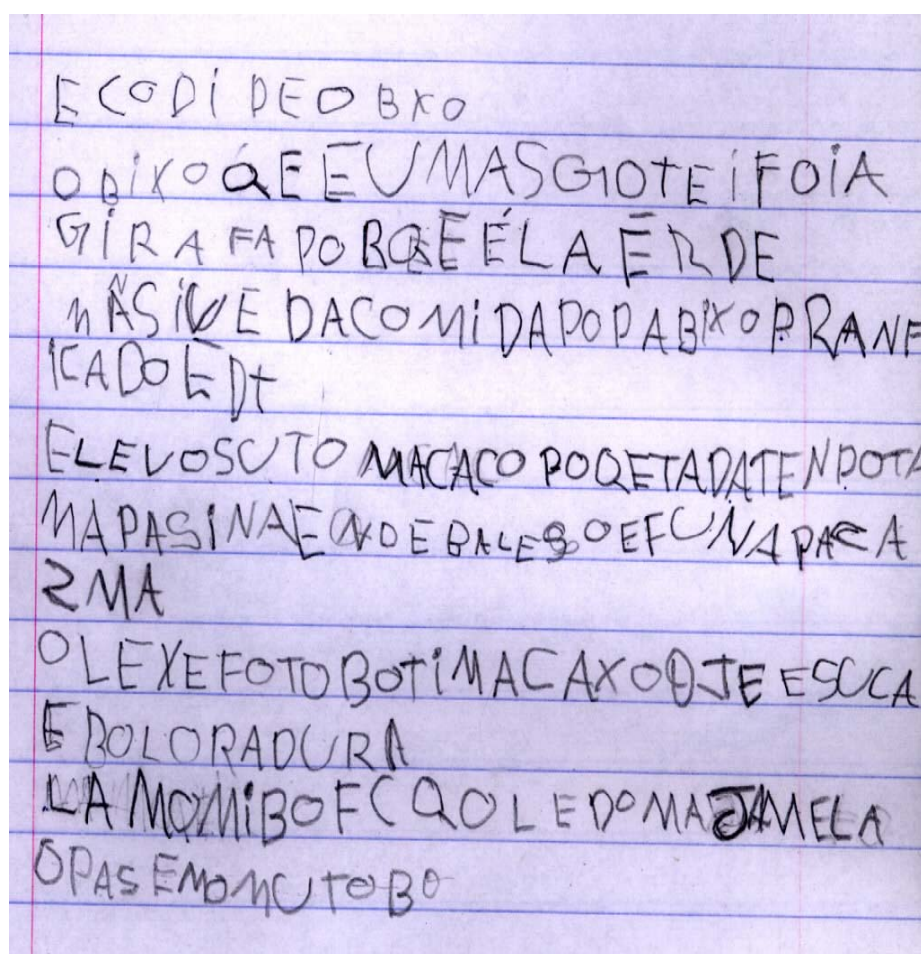 ECODI DEO BXO
O BIXO QE EU MAS GIOTEI FOI A
GIRAFA PORQE ÉLA ERDE
MÃS IVE DACOMIDAPOPABIXOPRANF
ICADO E DT
ELEVOSUTO MACACO POQETADATENDOTA
MAPASINAE NDEBALESOEFUNAPARA
ZMA
OLEXEFOTOBOTIMACAXOO JE ESUCA
E BOLORADURA
LAMOMIBOFCQOLEDOMAJAMELA
OPASEMOMUTOBO